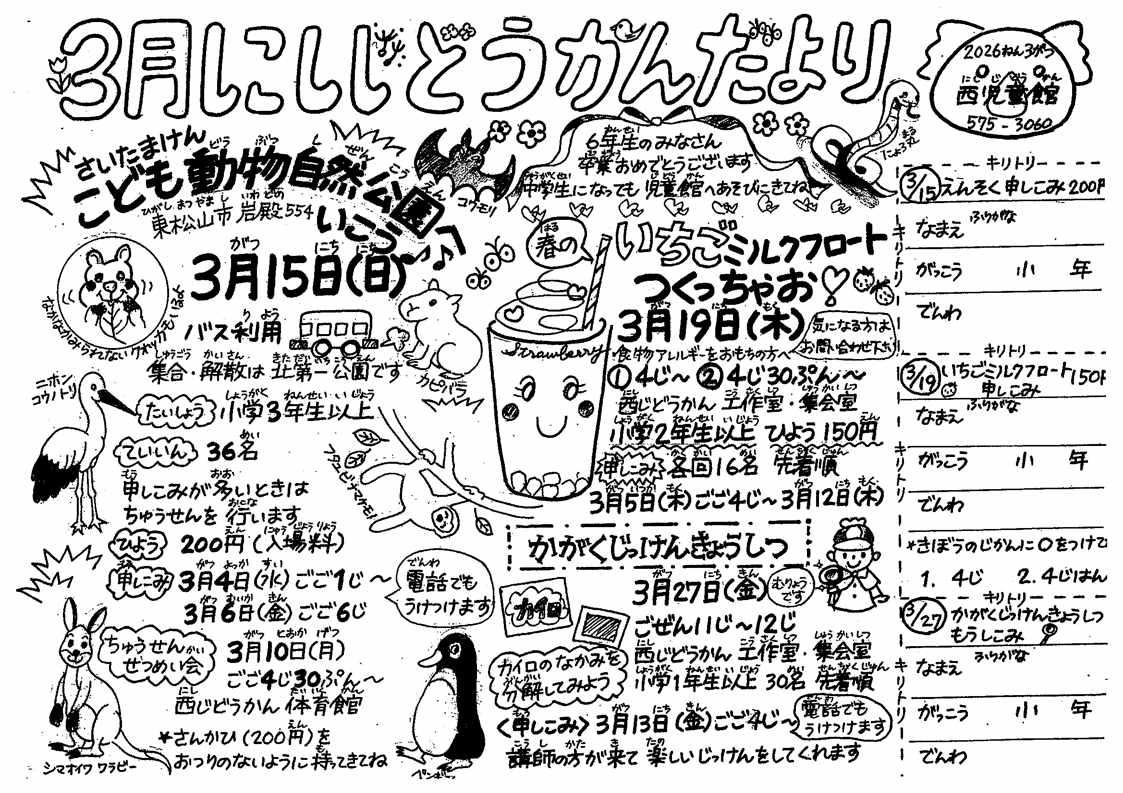 3月にしじどうかんだより
2026ねん3がつ
西児童館
575-3060
さいたまけん
こども動物自然公園
東松山市岩殿554
いこう♪
3月15日(日)
バス利用
集合・解散は北第一公園です
なかなかみられないクオッカもいるよ
コウモリ
カピバラ
ニホンコウノトリ
フタユビナマケモノ
シマオイワワラビー
ペンギン
たいしょう 小学3年生以上
ていいん 36名
申しこみが多いときは
ちゅうせんを行います
ひよう 200円(入場料)
申しこみ 3月4日(水)ごご1じ〜
3月6日(金)ごご6じ
電話でも
うけつけます
ちゅうせんかい
せつめい会
3月10日(月)
ごご4じ30ぷん〜
西じどうかん 体育館
*さんかひ(200円)を
おつりのないように持ってきてね
6年生のみなさん
卒業おめでとうございます
中学生になっても児童館へあそびにきてね
にょろ
春の
いちごミルクフロート
つくっちゃお
3月19日(木)
気になる方は
お問い合わせ下さい
Strawberry
食物アレルギーをおもちの方へ
①4じ〜 ②4じ30ぷん〜
西じどうかん 工作室・集会室
小学2年生以上 ひよう150円
申しこみ 各回16名 先着順
3月5日(木)ごご4じ〜3月12日(木)
かがくじっけんきょうしつ
3月27日(金)
むりょう
です
ごぜん11じ〜12じ
西じどうかん 工作室・集会室
小学1年生以上 30名 先着順
カイロ
カイロのなかみを
分解してみよう
<申しこみ>3月13日(金)ごご4じ〜
電話でも
うけつけます
講師の方が来て 楽しいじっけんをしてくれます
キリトリ
3/15 えんそく申しこみ 200円
ふりがな
なまえ
がっこう 小 年
でんわ
キリトリ
キリトリ
3/19 いちごミルクフロート 150円
申しこみ
ふりがな
なまえ
がっこう 小 年
でんわ
*きぼうのじかんに○をつけて
1. 4じ 2. 4じはん
キリトリ
キリトリ
3/27 かがくじっけんきょうしつ
もうしこみ
ふりがな
なまえ
がっこう 小 年
でんわ
キリトリ